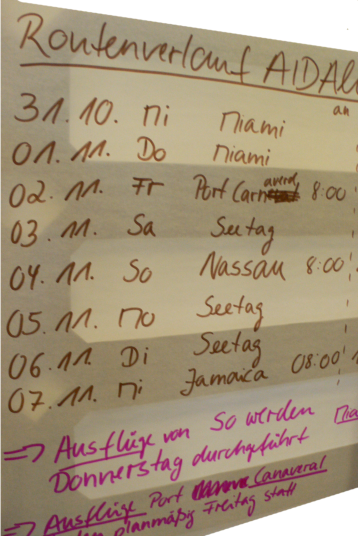 Routenverlauf AIDAl
an
31.10. Mi Miami
01.11. Do Miami
02.11. Fr Port Canaveral 8:00
03.11. Sa Seetag
04.11. So Nassau 8:00
05.11. Mo Seetag
06.11. Di Seetag
07.11. Mi Jamaica 08:00
=> Ausflüge von So werden Mia
Donnerstag durchgeführt
=> Ausflüge Port Canaveral
planmäßig Freitag statt